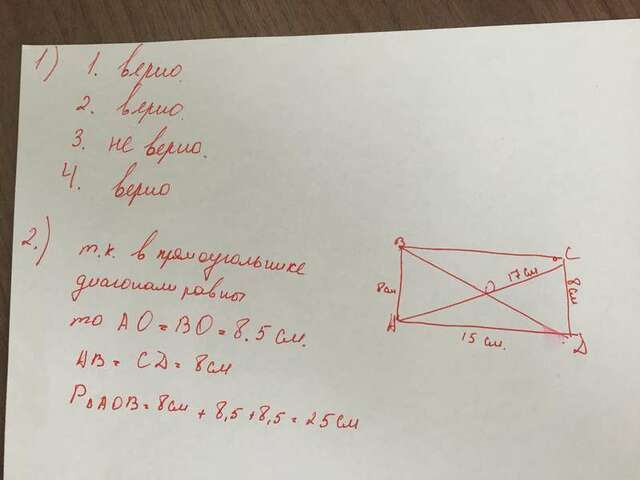 1) 1. верно.
2. верно.
3. не верно.
4. верно
2.) т.к. в прямоугольнике
диагонали равны
то AO = BO = 8.5 см.
AB = CD = 8см
P△AOB = 8см + 8,5 + 8,5 = 25 см
B
C
17 см
8см
O
8 см
A
15 см.
D